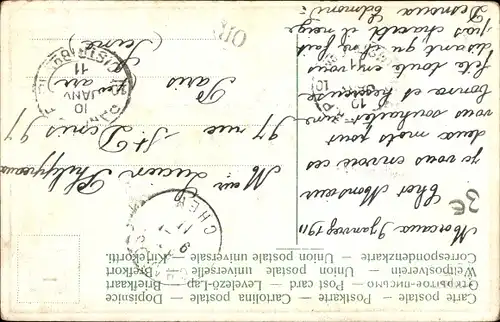 Carte postale – Postkarte – Cartolina postale – Dopisnice
Открытое письмо – Post card – Levelező-Lap – Briefkaart
Weltpostverein – Union postale universelle – Brefkort
Correspondenzkarte – Union postale universale – Kirjekortti.
9 janvier 1911
Cher Monsieur
je vous envoie ces
deux mots pour
vous souhaiter une
bonne et heureuse
fête toute en vous
disant qu'il ne fait
pas chaud il neige
Edmond
Mr Lucien Philippeaux
97 rue St Denis 97
Paris
(Seine)
10
JANV
11